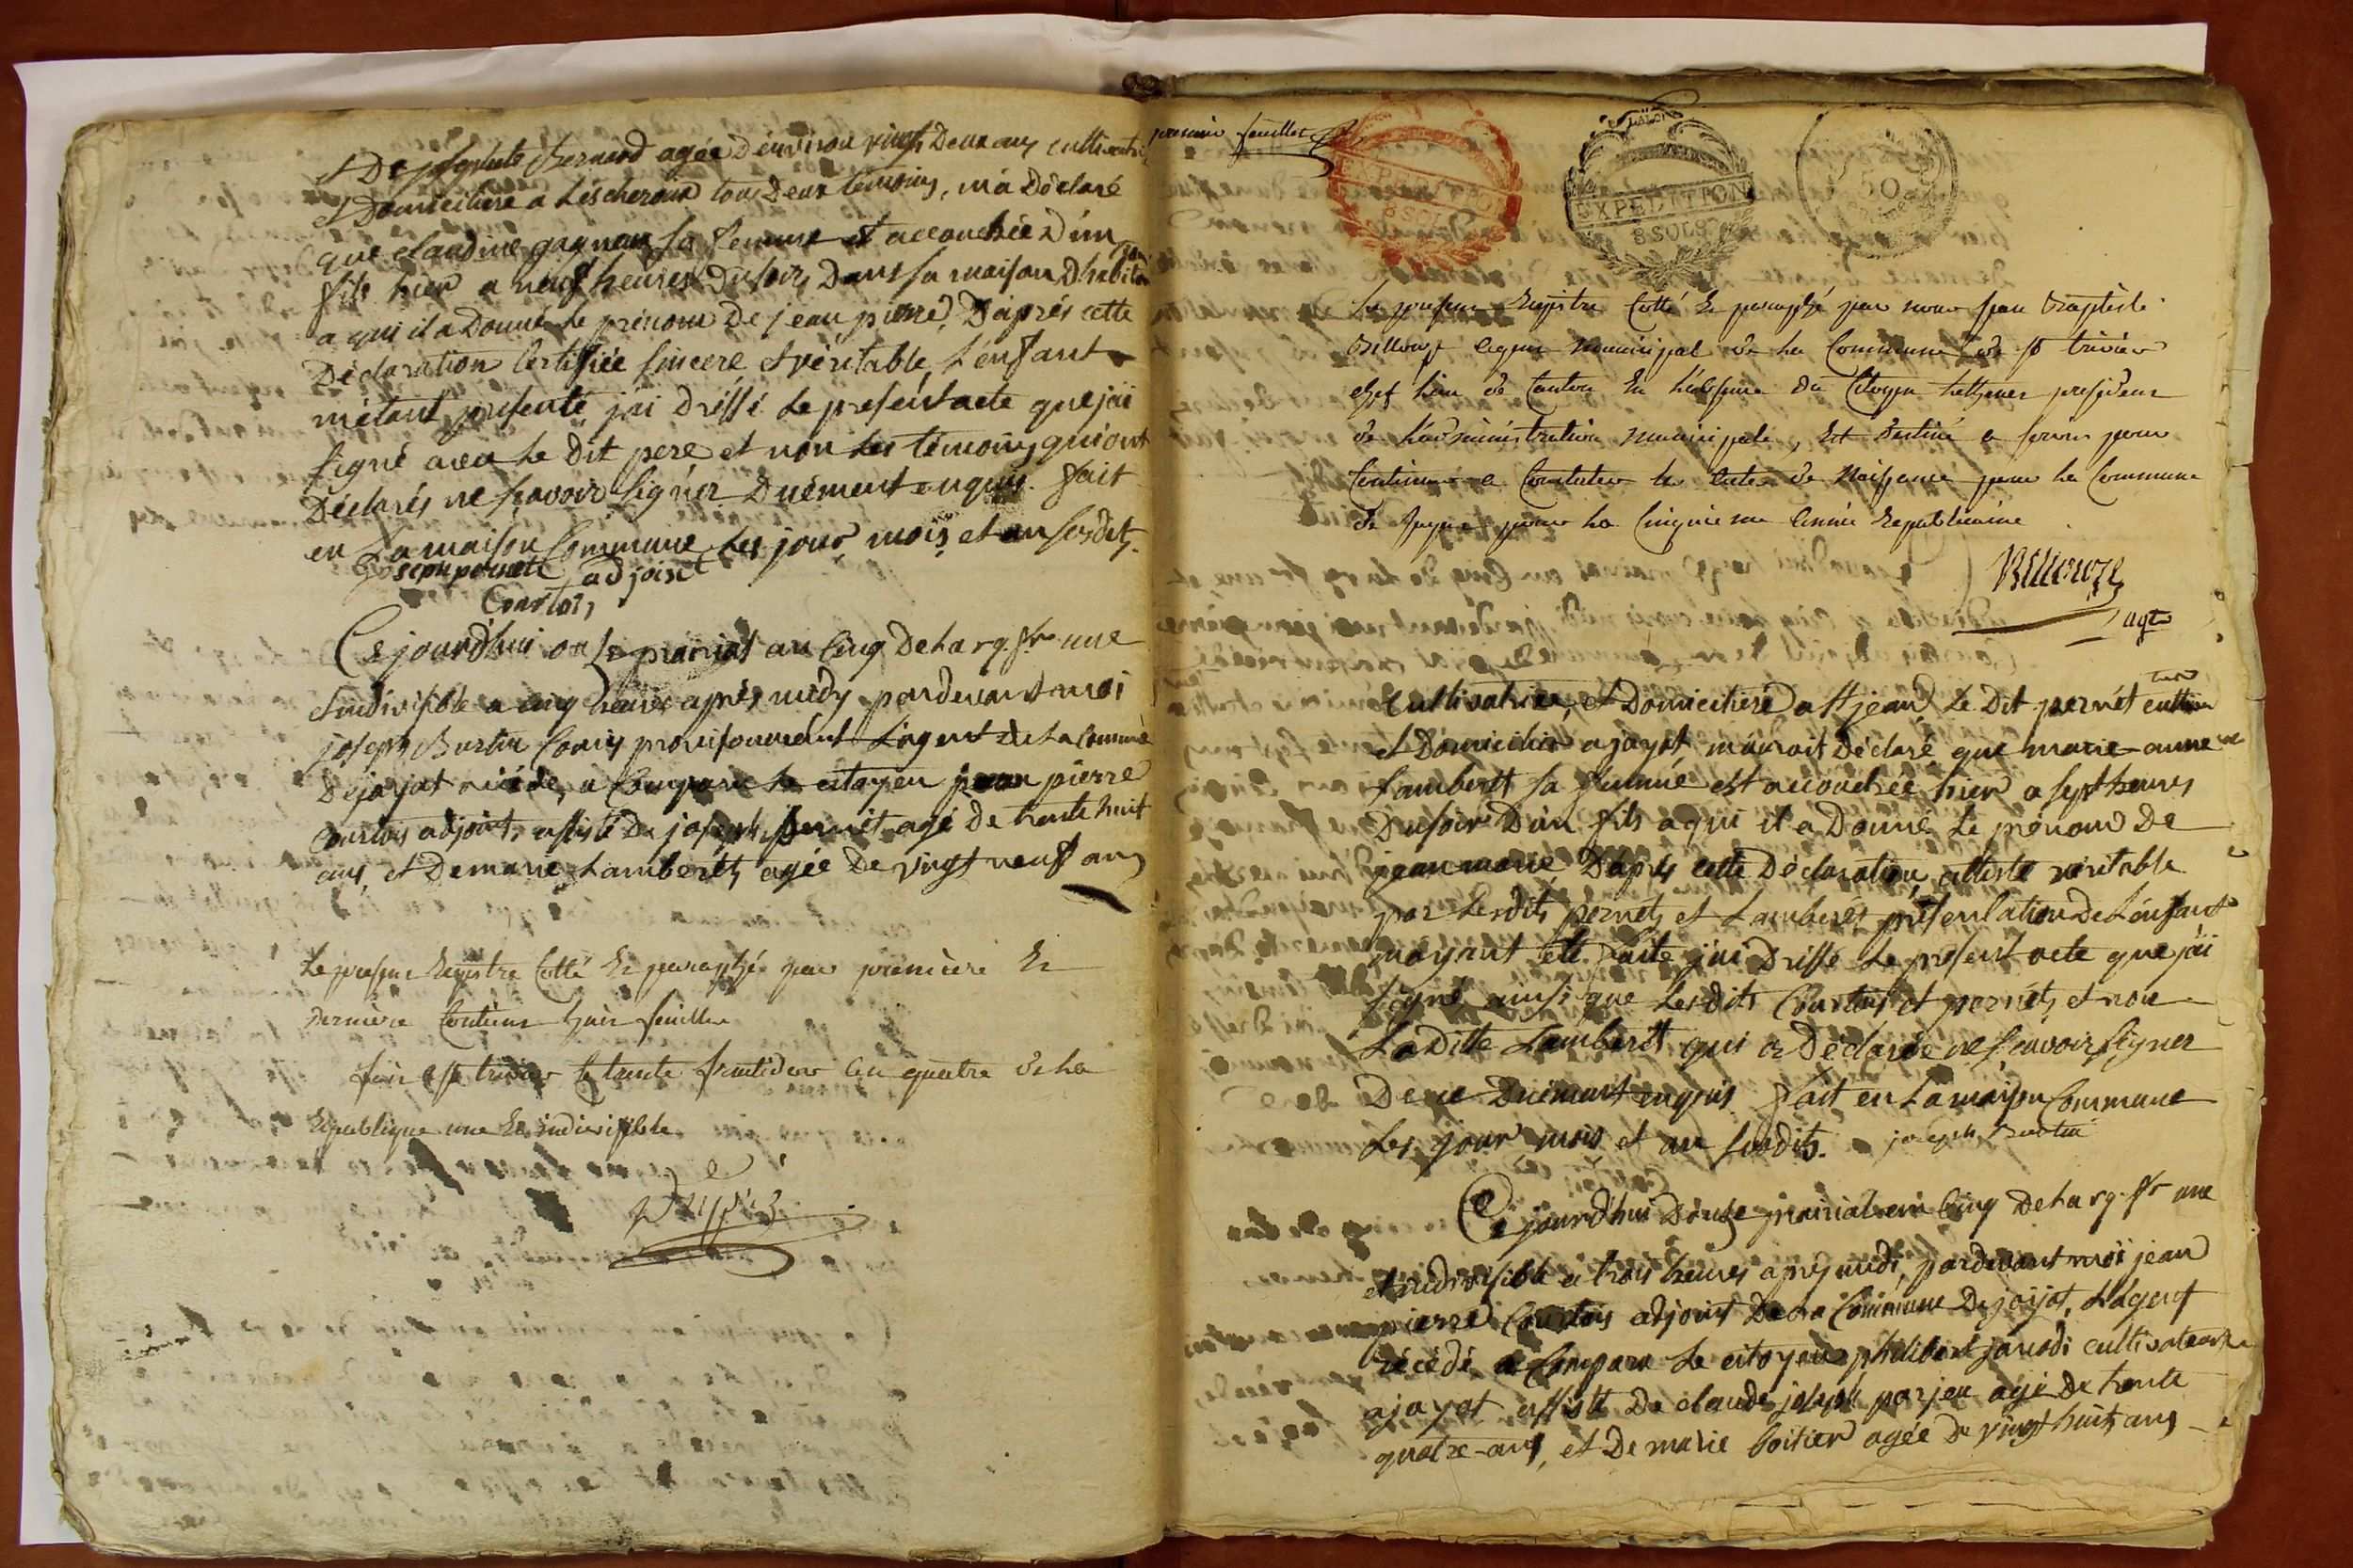 et De josephte Bernard agée D'environ vingt Deux ans cultivatri
et Domiciliée a Lescheroux tous Deux témoins, m'a Déclaré
que claudine gagneux sa femme est accouchée D'un
fils hier a neuf heures Du soir, Dans sa maison D'habita
tion
a qui il a Donné Le prénom De jean pierre, D'après cette
Déclaration Certifiée sincere et véritable, L'enfant
m'étant présenté j'ai Dréssé Le present acte que j'ai
signé avec Le Dit pere et non Les témoins qui ont
Déclarés ne sçavoir signér Duément enquis. fait
en La maison Commune Les jour, mois, et an susdits.
adjoint
Courtois
Cejourd'hui onze prairial an Cinq De La rq. fr une
et indivisible a cinq heures après midy pardevant moi
joseph Burtin Commis provisoirement L'agent De La Commune
De jayat récédé, a Comparu Le citoyen jean pierre
Courtois adjoint, assisté De joseph pernét agé De trente huit
ans, et De marie Lamberét, agée De vingt neuf ans
Le present Registre Cotté Et paraphé par premiere Et
Derniere Contient huit feuilles
fait a st trivier le trente fructidor an quatre de la
Republique une Et indivisible
premier feuillet
EXPEDITION
8 SOLS
EXPEDITION
8 SOLS
50
Le present Registre Cotté Et paraphé par nous jean Baptiste
Billoux agent municipal de la Commune de st trivier
chef lieu de Canton En l'absence du Citoyen president
de l'administration municipale, Est destiné a servir pour
Continuer a Constater les actes de Naissance pour la Commune
de jayat pour la Cinquieme année Republicaine
Billoux
agt
Cultivatrice, et Domiciliée a st jean, Le Dit pernét cultiva
teur
et Domicilié a jayat, m'auroit Déclaré que marie-anne
Lamberét sa femme est accouchée hier a sept heures
Du soir D'un fils a qui il a Donné Le prénom De
jean marie D'après cette Déclaration, attesté véritable
par Lesdits pernét, et Lamberét, présentation De L'enfant
m'ayant été faite j'ai Dréssé Le present acte que j'ai
signé ainsi que Lesdits Courtois et pernét, et non
La Ditte Lamberét qui a Déclarée ne sçavoir signer
De ce Duément enquis. fait en La maison Commune
Les jour, mois, et an susdits. joseph Burtin
Cejourd'hui Douze prairial an Cinq De La rq. fr une
et indivisible a trois heures après midi, pardevant moi jean
pierre Courtois adjoint De La Commune De jayat, L'agent
récédé a Comparu Le citoyen philibert cultivateur
a jayat assisté De claude joseph parjen agé De trente
quatre ans, et De marie Boitier agée De vingt huit ans